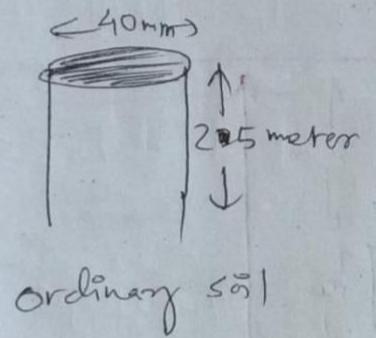 40mm
2.5 meter
ordinary soil